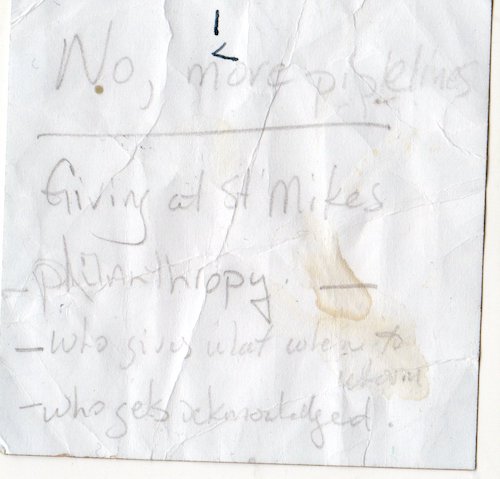 No, more pipelines
Giving at St Mikes
- philanthropy. —
- who gives what when to
whom
- who gets acknowledged.